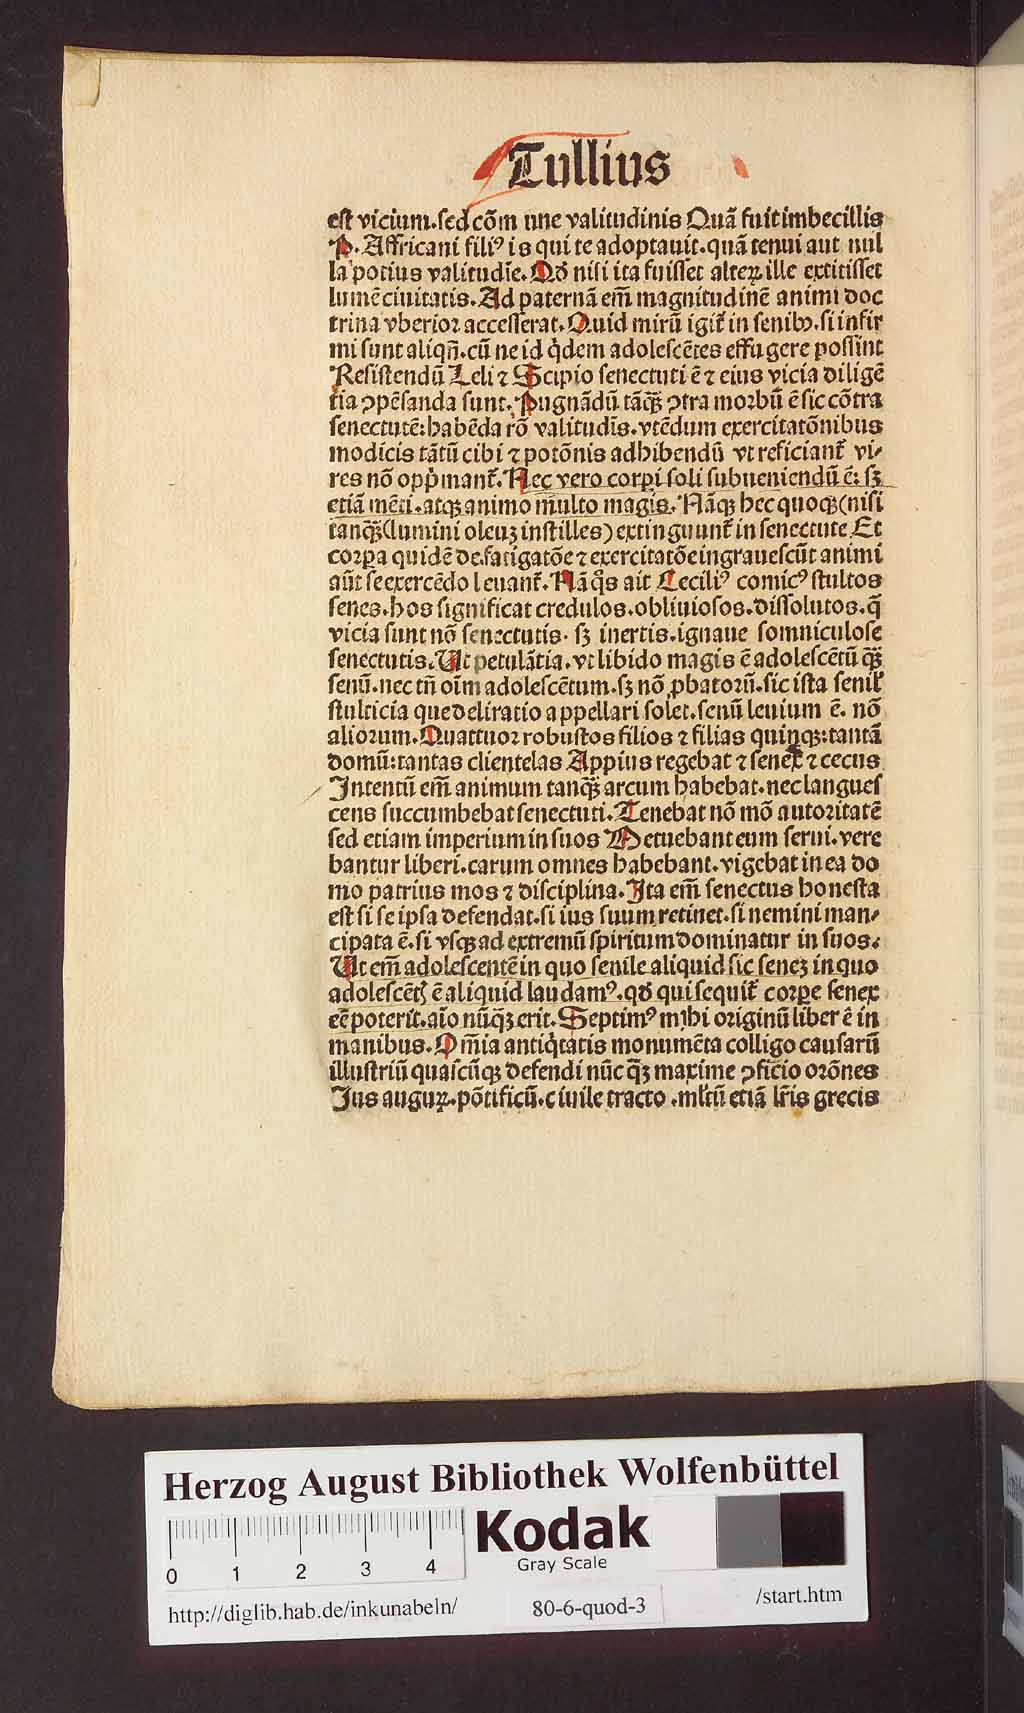 Tullius
est vicium.sed cōm une valitudinis Quā fuit imbecillis
P. Affricani filiꝰ is qui te adoptauit.quā tenui aut nul
la potius valitudīe. Qd nisi ita fuisset alteꝝ ille extitisset
lumē ciuitatis. Ad paternā em̄ magnitudinē animi doc
trina vberior accesserat. Quid mirū igit̄ in senibꝫ.si infir
mi sunt aliqn̄.cū ne id q̇dem adolescētes effugere possint
Resistendū Leli ⁊ Scipio senectuti ē ⁊ eius vicia diligē
tia ꝯpēsanda sunt. Pugnādū tāqꝫ̄ ꝯtra morbū ē sic cōtra
senectutē: habēda rō valitudīs.vtēdum exercitatōnibus
modicis tātū cibi ⁊ potōnis adhibendū vt reficiant̄ vi⸗
res nō opṗmant̄. Nec vero corpi soli subueniendū ē: sꝫ
etiā mēti.atqꝫ animo multo magis. Nāqꝫ hec quoqꝫ (nisi
tanqꝫ̄ (lumini oleuꝫ instilles) extinguunt̄ in senectute Et
corpa quidē de.fatigatōe ⁊ exercitatōe ingrauescūt animi
aūt se exercēdo leuant̄. Nā q̊s ait Ceciliꝰ comicꝰ stultos
senes.hos significat credulos.obliuiosos.dissolutos.q̄
vicia sunt nō senectutis. sꝫ inertis.ignaue somniculose
senectutis. Ut petulātia.vt libido magis ē adolescētū qꝫ̄
senū.nec tn̄ oīm adolescētum.sꝫ nō ꝓbatorū.sic ista senil̄
stulticia que deliratio appellari solet.senū leuium ē. nō
aliorum. Quattuor robustos filios ⁊ filias quinqꝫ: tantā
domū: tantas clientelas Appius regebat ⁊ senex ⁊ cecus
Intentū em̄ animum tanqꝫ̄ arcum habebat.nec langues
cens succumbebat senectuti. Tenebat nō mō autoritatē
sed etiam imperium in suos Metuebant eum serui.vere
bantur liberi.carum omnes habebant.vigebat in ea do
mo patrius mos ⁊ disciplina. Ita em̄ senectus honesta
est si se ipsa defendat.si ius suum retinet.si nemini man⸗
cipata ē.si vsqꝫ ad extremū spiritum dominatur in suos.
Ut em̄ adolescentē in quo senile aliquid sic seneꝫ in quo
adolescētꝭ ē aliquid laudamꝰ.qd qui sequit̄ corpe senex
eē poterit.aīo nūqꝫ̄ erit. Septimꝰ mihi originū liber ē in
manibus. Om̄ia antiq̇tatis monumēta colligo causarū
illustriū quascūqꝫ defendi nūc qꝫ̄ maxime ꝯficio orōnes
Jus auguꝝ.pōtificū.ciuile tracto.ml̄tū etiā lr̄is grecis
Herzog August Bibliothek Wolfenbüttel
0 1 2 3 4
Kodak
Gray Scale
http://diglib.hab.de/inkunabeln/ 80-6-quod-3 /start.htm